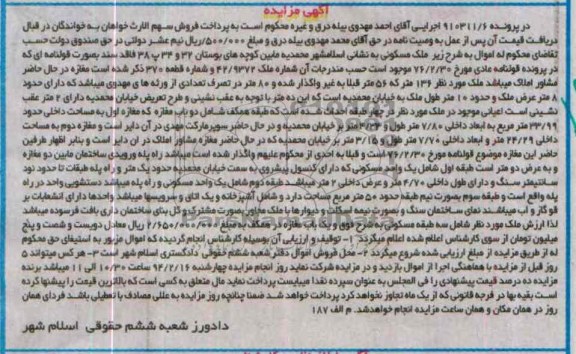 آگهی مزایده
در پرونده ۹۱۰۳۱۱/۶ اجرایی آقای احمد مهدوی بیله درق و غیره محکوم است به پرداخت فروش سهم الارث خواهان به خواندگان در قبال
دریافت قیمت آن پس از عمل به وصیت نامه در حق آقای محمد مهدوی بیله درق و مبلغ ۵۰۰/۰۰۰ ریال نیم عشر دولتی در حق صندوق دولت حسب
تقاضای محکوم له اموال به شرح زیر ملک مسکونی به نشانی اسلامشهر محمدیه مابین کوچه های بوستان ۳۲ و ۳۴ پ ۳۸ فاقد سند بصورت قولنامه ای که
در پرونده قولنامه عادی مورخ ۷۶/۲/۳۰ موجود است حسب مندرجات آن شماره ملک ۴۲/۹۳۷۲ و شماره قطعه ۳۷۰ ذکر شده است مغازه در حال حاضر
مشاور املاک میباشد ملک مورد نظر ۱۳۶ متر که ۵۶ متر قبلا به غیر واگذار شده و ۸۰ متر در تصرف تعدادی از ورثه ها ی مهدوی میباشد که دارای حدود
۸ متر عرض ملک و حدود ۱۰ متر طول ملک به خیابان محمدیه است که این ده متر با توجه به عقب نشینی و طرح تعریض خیابان محمدیه دارای ۲ متر عقب
نشینی است اعیانی موجود در ملک مورد نظر در سه طبقه احداث شده است که طبقه همکف شامل دو باب مغازه که مغازه اول به مساحت داخلی حدود
۳۳/۹۹ متر مربع به ابعاد داخلی ۷/۸۰ متر طول خیابان محمدیه و در حال حاضر سوپرمارکت مهدی در آن دایر است و مغازه دوم به مساحت
داخلی ۲۴/۲۹ متر و ابعاد داخلی ۷/۷۰ متر طول و ۳/۱۵ متر بر خیابان محمدیه که در حال حاضر مغازه مشاور املاک در ان دایر است و بنابر اظهار طرفین
حاضر این مغازه موضوع قولنامه مورخ ۷۶/۲/۳۰ است و قبلا به احدی از محکوم علیهم واگذار شده است میباشد راه پله ورودی ساختمان مابین دو مغازه
و به عرض دو متر است طبقه اول شامل یک واحد مسکونی که دارای کنسول پیشروی به سمت خیابان محمدیه حدود یک متر و راه پله طبقات تا حدود نود
سانتیمتر سنگ و دارای طول داخلی ۴/۷۰ متر و عرض داخلی ۲ متر میباشد طبقه دوم شامل یک واحد مسکونی و راه پله میباشد دستشویی واحد در راه
پله واقع است و طبقه سوم بصورت نیم طبقه حدود ۵۰ متر مربع ساخت دارد و شامل آشپزخانه و یک اتاق و سرویسها میباشد واحدها دارای انشعابات بر
ق و گاز و آب میباشند نمای ساختمان سنگ و بصورت نیمه اسکلت و دیوارها با ملک مجاور بصورت مشترک و کل بنای ساختمان داری بافت فرسوده میباشد
لذا ارزش ملک مورد نظر شامل سه طبقه مسکونی به شرح فوق و یک باب مغازه در همکف به مبلغ ۲/۶۵۰/۰۰۰/۰۰۰ ریال معادل دویست و شصت و پنج
میلیون تومان از سوی کارشناس اعلام شده اعلام میگردد ۱- توقیف و ارزیابی آن بوسیله کارشناس انجام گردیده که اموال مزبور به استیفای حق محکوم
له از طریق مزایده از مبلغ ارزیابی شده شروع میگردد ۲- محل فروش اموال دفتر شعبه ششم حقوقی دادگستری اسلام شهر است ۳- هر کس میتواند ۵
روز قبل از مزایده با هماهنگی اجرا از اموال بازدید و در مزایده شرکت نماید روز انجام مزایده چهارشنبه ۹۲/۲/۱۶ ساعت ۱۰/۳۰ الی ۱۱ میباشد برنده
مزایده ده درصد قیمت پیشنهادی را فی المجلس به عنوان سپرده نقدا میبایست پرداخت نماید مال متعلق به کسی است که بالاترین قیمت را پیشنهاد کرده
است بقیه بها در فرجه قانونی که از یک ماه تجاوز نخواهد کرد پرداخت خواهد شد ضمنا چنانچه روز مزایده به عللی مصادف با تعطیلی باشد فردای همان
روز در همان مکان و همان ساعت مزایده انجام خواهدشد. م الف ۱۸۷
دادورز شعبه ششم حقوقی اسلام شهر